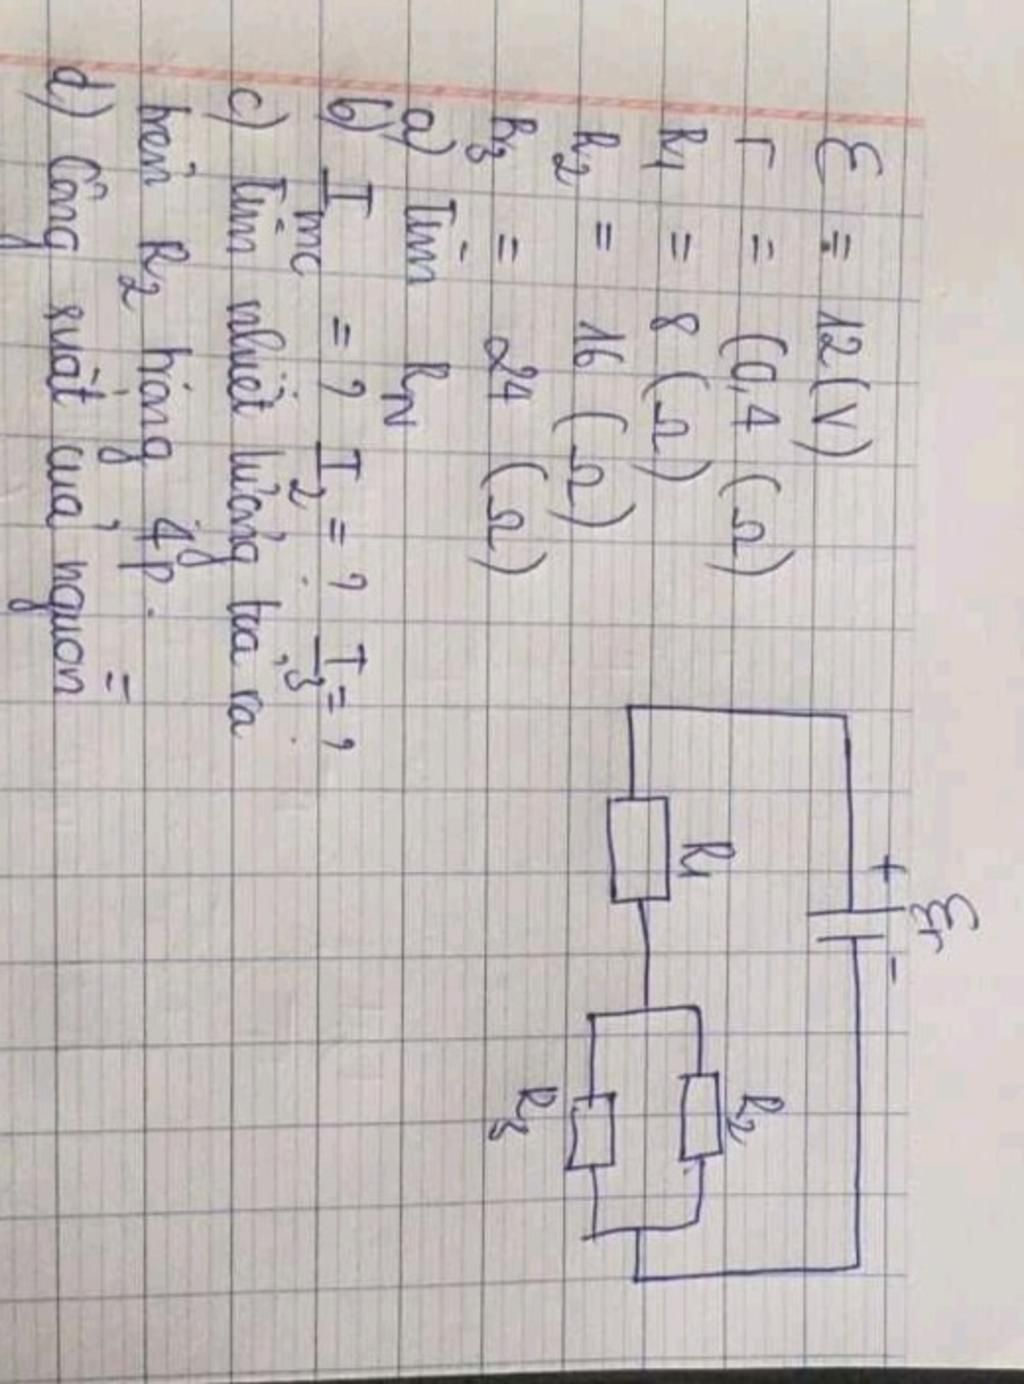 Ɛ = 12 (V)
r = (0,4 (Ω)
R1 = 8 (Ω)
R2 = 16 (Ω)
R3 = 24 (Ω)
a) Tìm RN
b) Imc = ? I2 = ? I3 = ?
c) Tìm nhiệt lượng tỏa ra
trên R2 trong 4p.
d) Công suất của nguồn
Ɛr
+ -
R1
R2
R3